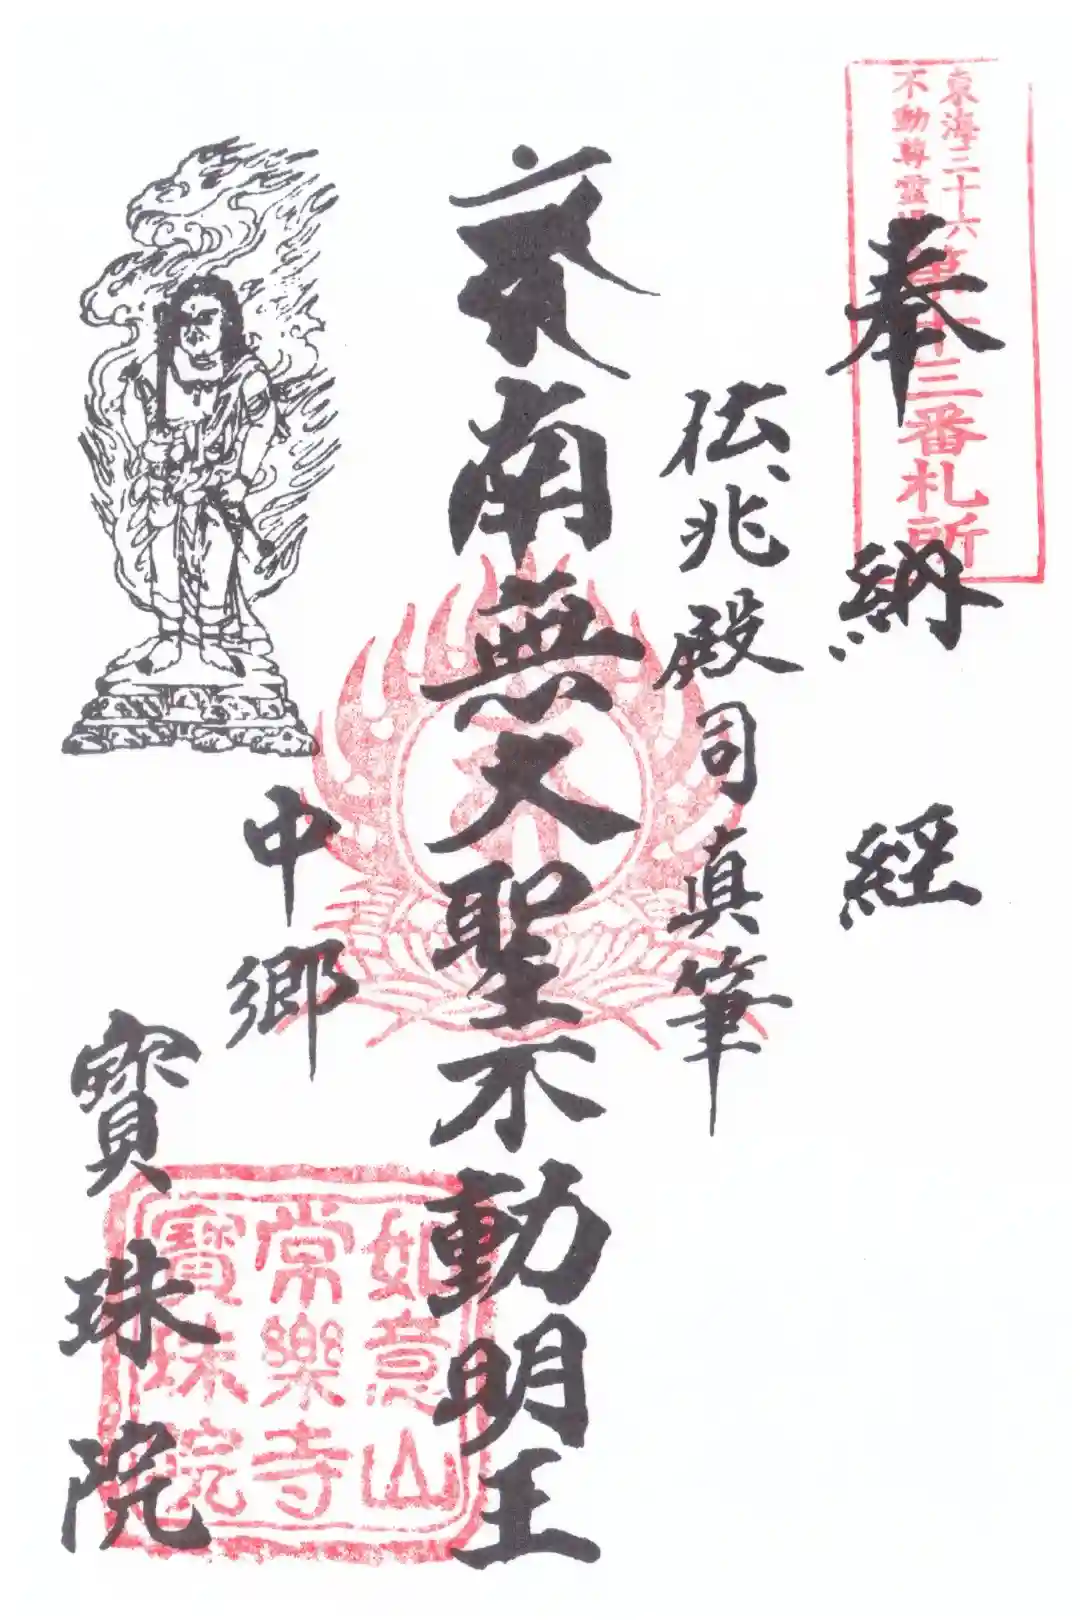 東海三十六
不動尊霊場
第十三番札所
奉納経
伝兆殿司真筆
南無大聖不動明王
中郷
寳珠院
如意山
常樂寺
寳珠院